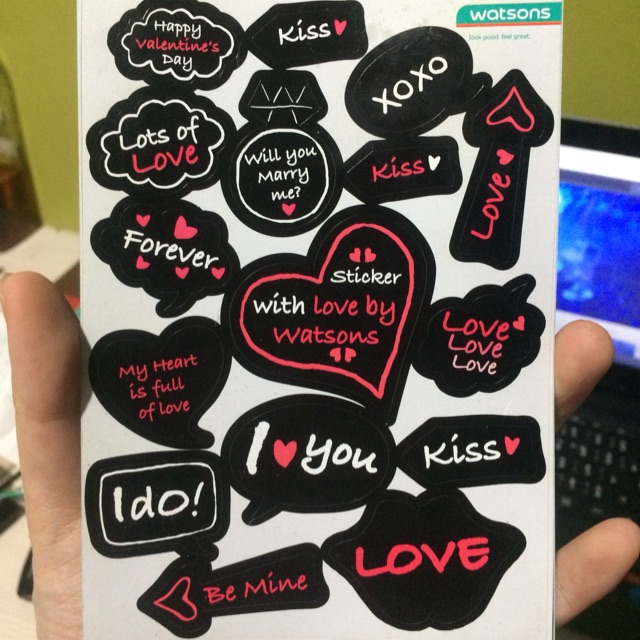 Happy
Valentine's
Day
Kiss
watsons
look good. feel great.
XOXO
Lots of
Love
Will you
Marry
me?
Kiss
Love
Forever
Sticker
with love by
Watsons
Love
Love
Love
My Heart
is full
of love
I ♥ you
Kiss
I do!
LOVE
Be Mine